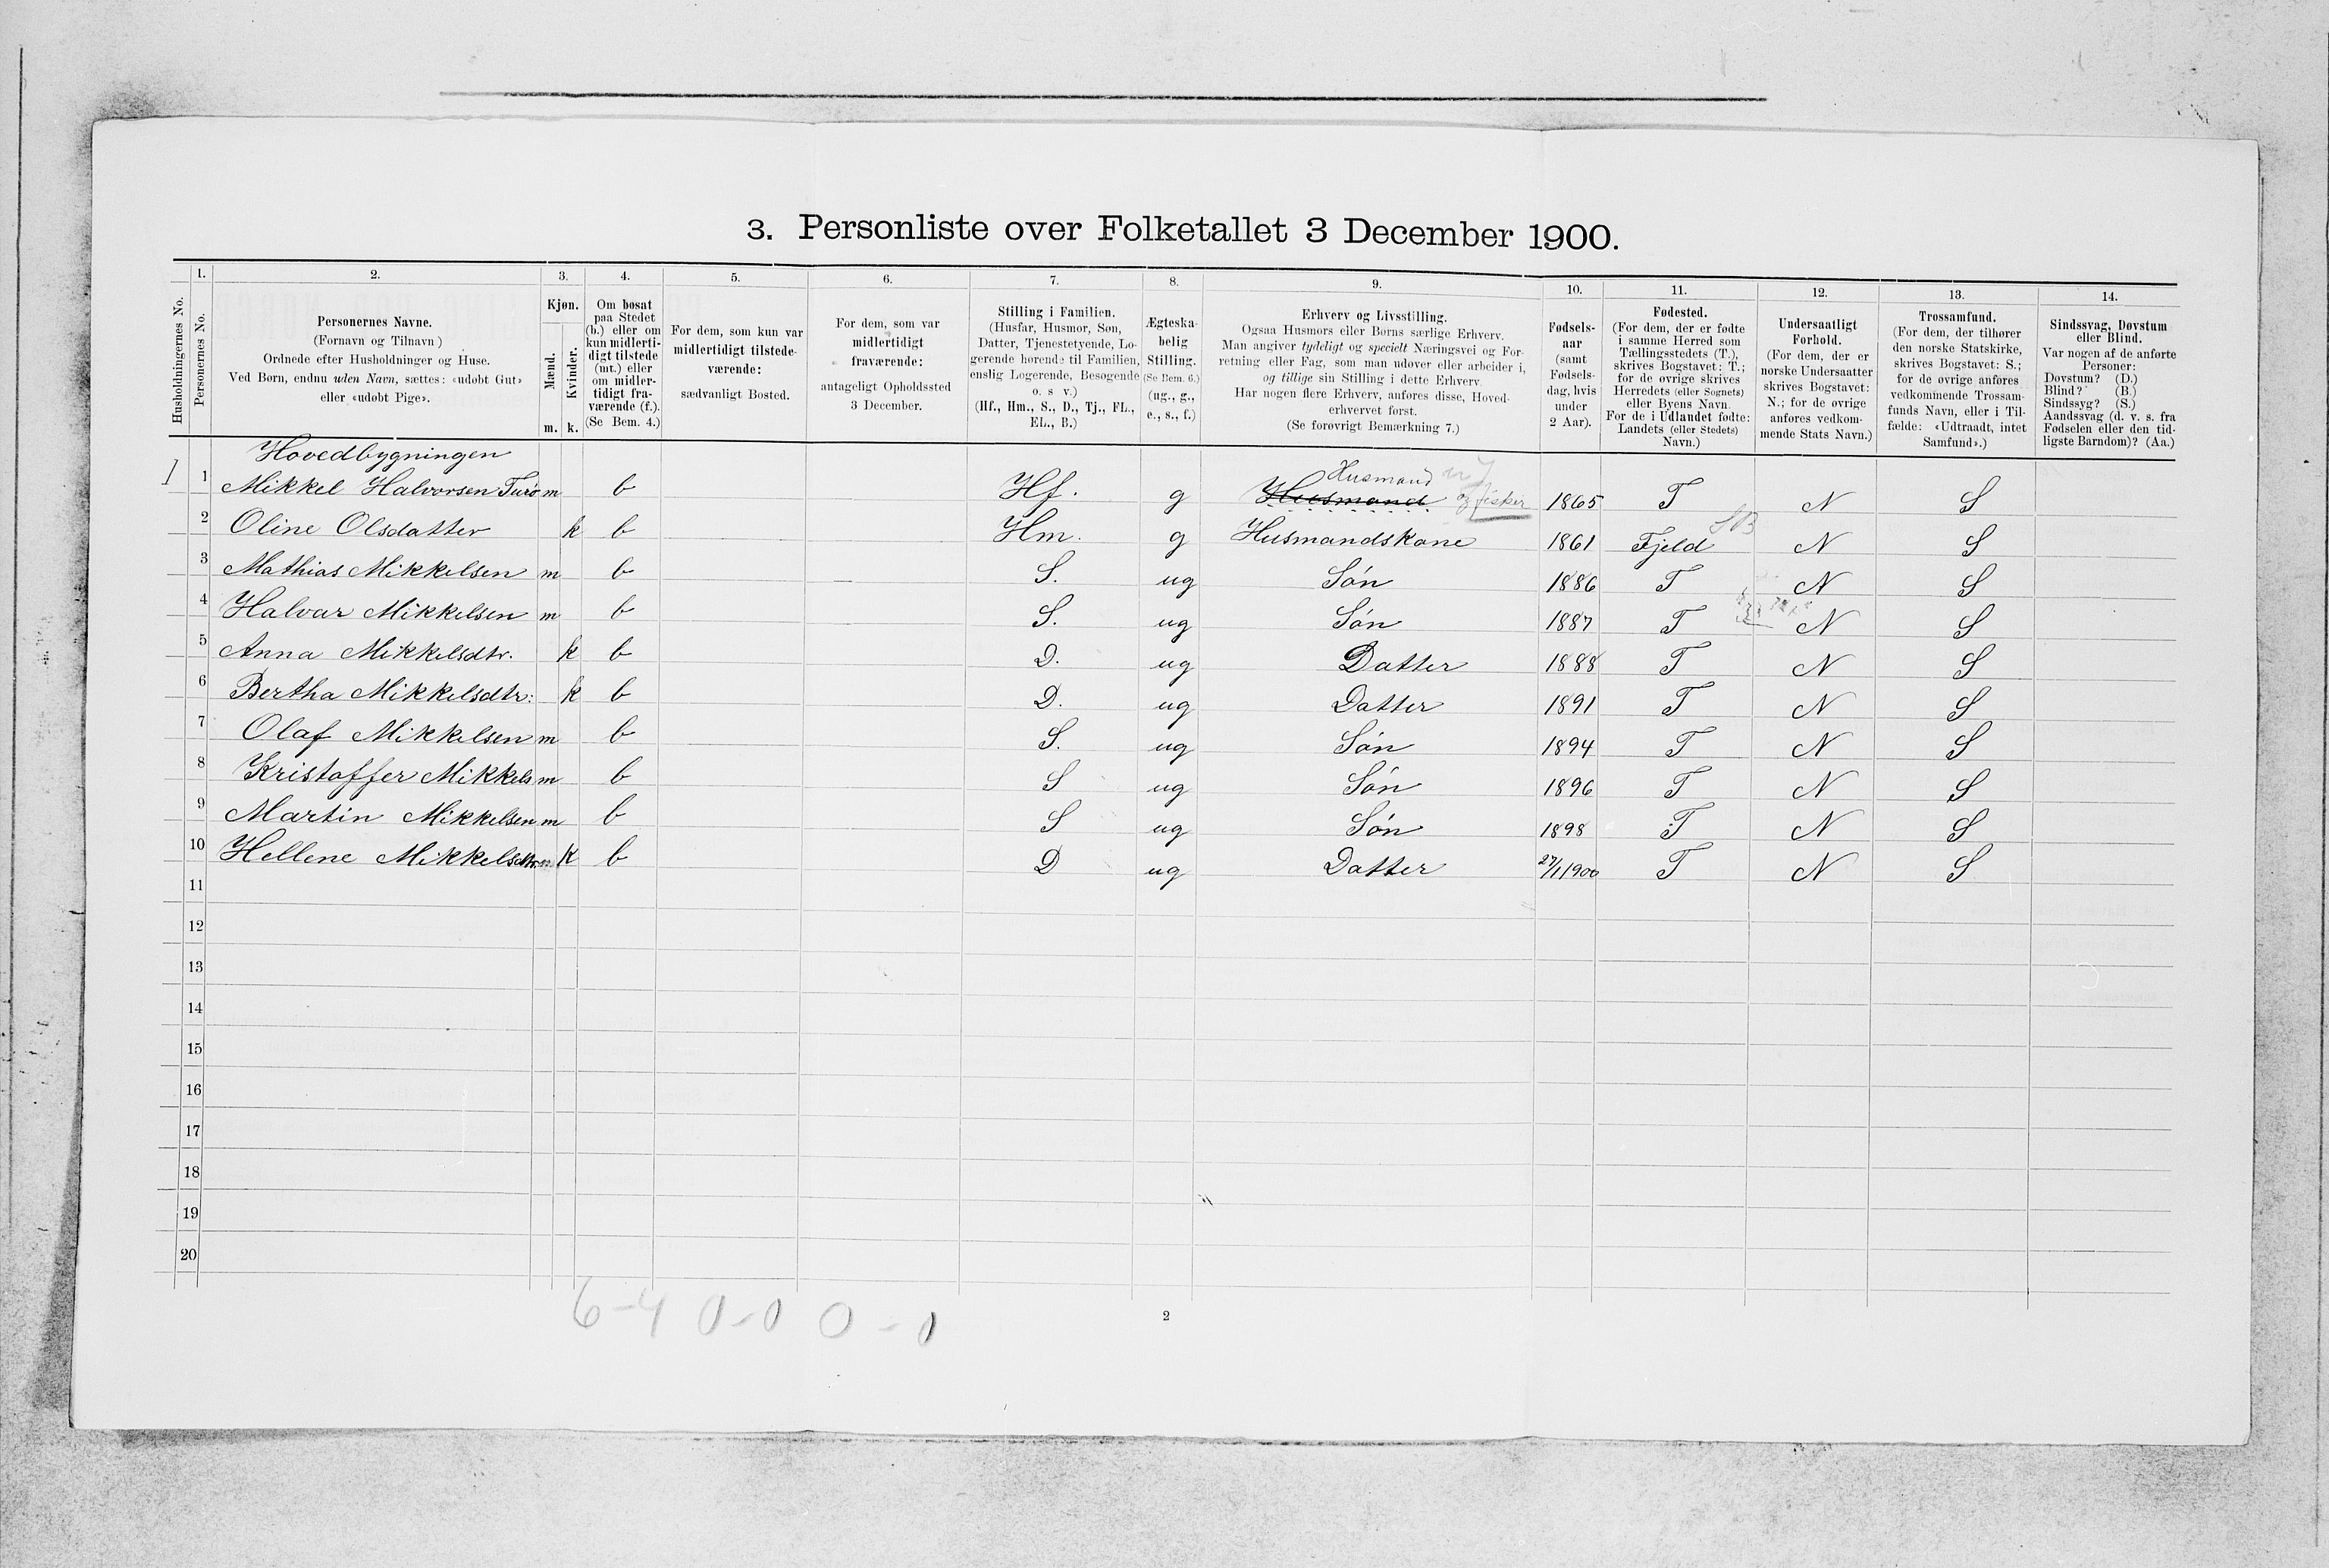 3. Personliste over Folketallet 3 December 1900.
1. 2. 3. 4. 5. 6. 7. 8. 9. 10. 11. 12. 13. 14.
Husholdningernes No.
Personernes No.
Personernes Navne.
(Fornavn og Tilnavn)
Ordnede efter Husholdninger og Huse.
Ved Børn, endnu uden Navn, sættes: «udøbt Gut»
eller «udøbt Pige».
Kjøn.
Mænd.
Kvinder.
m. k.
Om bosat
paa Stedet
(b.) eller om
kun midlerti-
digt tilstede
(mt.) eller
om midler-
tidigt fra-
værende (f.).
(Se Bem. 4.)
For dem, som kun var
midlertidigt tilstede-
værende:
sædvanligt Bosted.
For dem, som var
midlertidigt
fraværende:
antageligt Opholdssted
3 December.
Stilling i Familien.
(Husfar, Husmor, Søn,
Datter, Tjenestetyende, Lo-
gerende hørende til Familien,
enslig Logerende, Besøgende
o. s v.)
(Hf., Hm., S., D., Tj., FL.,
EL., B.)
Ægteska-
belig
Stilling.
(Se Bem. 6.)
(ug., g.,
e., s., f.)
Erhverv og Livsstilling.
Ogsaa Husmors eller Børns særlige Erhverv.
Man angiver tydeligt og specielt Næringsvei og For-
retning eller Fag, som man udøver eller arbeider i,
og tillige sin Stilling i dette Erhverv.
Har nogen flere Erhverv, anføres disse, Hoved-
erhvervet først.
(Se forøvrigt Bemærkning 7.)
Fødsels-
aar
(samt
Fødsels-
dag, hvis
under
2 Aar).
Fødested.
(For dem, der er fødte
i samme Herred som
Tællingsstedets (T.),
skrives Bogstavet: T.;
for de øvrige skrives
Herredets (eller Sognets)
eller Byens Navn.
For de i Udlandet fødte:
Landets (eller Stedets)
Navn.)
Undersaatligt
Forhold.
(For dem, der er
norske Undersaatter
skrives Bogstavet:
N.; for de øvrige
anføres vedkom-
mende Stats Navn.)
Trossamfund.
(For dem, der tilhører
den norske Statskirke,
skrives Bogstavet: S.;
for de øvrige anføres
vedkommende Trossam-
funds Navn, eller i Til-
fælde: «Udtraadt, intet
Samfund».)
Sindssvag, Døvstum
eller Blind.
Var nogen af de anførte
Personer:
Døvstum? (D.)
Blind? (B.)
Sindssyg? (S.)
Aandssvag (d. v. s. fra
Fødselen eller den tid-
ligste Barndom)? (Aa.)
Hovedbygningen
1 1 Mikkel Halvorsen Turø m b Hf. g Husmand Husmand og fisker 1865 T N S
2 Oline Olsdatter k b Hm. g Husmandskone 1861 Fjeld N S
3 Mathias Mikkelsen m b S. ug Søn 1886 T N S
4 Halvar Mikkelsen m b S. ug Søn 1887 T N S
5 Anna Mikkelsdtr. k b D. ug Datter 1888 T N S
6 Bertha Mikkelsdtr: k b D. ug Datter 1891 T N S
7 Olaf Mikkelsen m b S. ug Søn 1894 T N S
8 Kristoffer Mikkels m b S ug Søn 1896 T N S
9 Martin Mikkelsen m b S ug Søn 1898 T N S
10 Hellene Mikkelsdtr. k b D ug Datter 27/1 1900 T N S
11
12
13
14
15
16
17
18
19
20
6-4 0-0 0-0
2